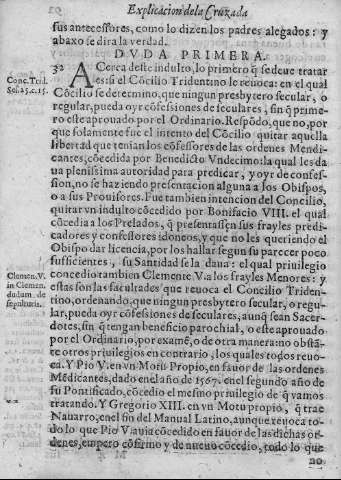 Explicacion dela Cruzada
sus antecessores, como lo dizen los padres alegados: y
abaxo se dira la verdad.
DVDA PRIMERA.
32 Acerca deste indulto, lo primero q̃ se deue tratar
Conc. Trid.
Ses. 23. c. 15.
es: si el Cõcilio Tridentino le reuoca: en el qual
Cõcilio se determino, que ningun presbytero secular, o
regular, pueda oyr cõfesiones de seculares, sin q̃ prime-
ro este aprouado por el Ordinario. Respõdo, que no, por
que solamente fue el intento del Cõcilio quitar aquella
libertad que tenian los cõfessores de las ordenes Mendi-
cantes, cõcedida por Benedicto Vndecimo: la qual les da
ua plenissima autoridad para predicar, y oyr de confes-
sion, no se haziendo presentacion alguna a los Obispos,
o a sus Prouisores. Fue tambien intencion del Concilio,
quitar vn indulto cõcedido por Bonifacio VIII. el qual
cõcedia a los Prelados, q̃ presentassen sus frayles predi-
cadores y confessores idoneos, y que no les queriendo el
Obispo dar licencia, por los hallar segun su parecer poco
sufficientes, su Santidad se la daua: el qual priuilegio
Clemen. V.
in Clemen.
dudum. de
sepulturis.
concedio tambien Clemente V. a los frayles Menores: y
estas son las facultades que reuoca el Concilio Triden-
tino, ordenando, que ningun presbytero secular, o regu-
lar, pueda oyr cõfesiones de seculares, aunq̃ sean Sacer-
dotes, sin q̃ tengan beneficio parochial, o este aprouado
por el Ordinario, por examẽ, o de otra manera: no obstã-
te otros priuilegios en contrario, los quales todos reuo-
ca. Y Pio V. en vn Motu Proprio, en fauor de las ordenes
Mẽdicantes, dado en el año de 1567. en el segundo año de
su Pontificado, cõcedio el mesmo priuilegio de q̃ vamos
tratando. Y Gregorio XIII. en vn Motu propio, q̃ trae
Nauarro, en el fin del Manual Latino, aunque reuoca to-
do lo que Pio V. auia cõcedido en fauor de las dichas or-
denes, empero cõfirmo y de nueuo cõcedio, todo lo que
no